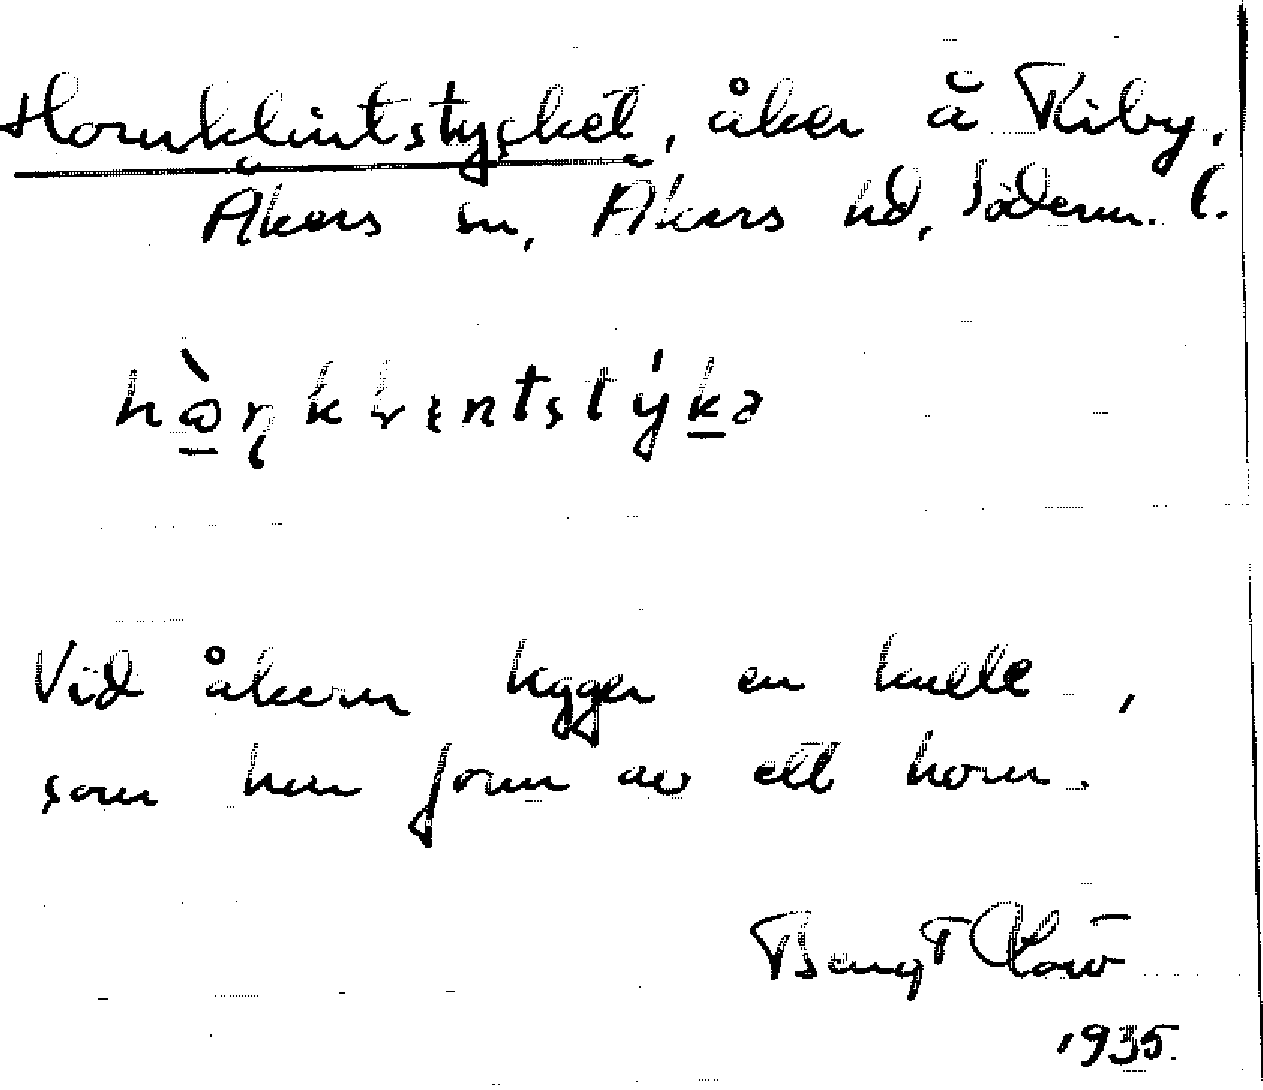 Hornklintstycket, åker å Kiby,
Åkers sn, Åkers hd, Söderm. l.
Vid åkern ligger en kulle,
som har form av ett horn.
Bengt
1935.